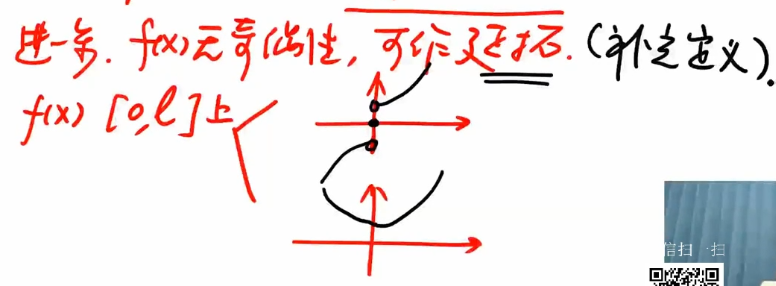 进一步. f(x)无奇偶性, 可作延拓. (补定义).
f(x) [0,l]上
信扫一扫